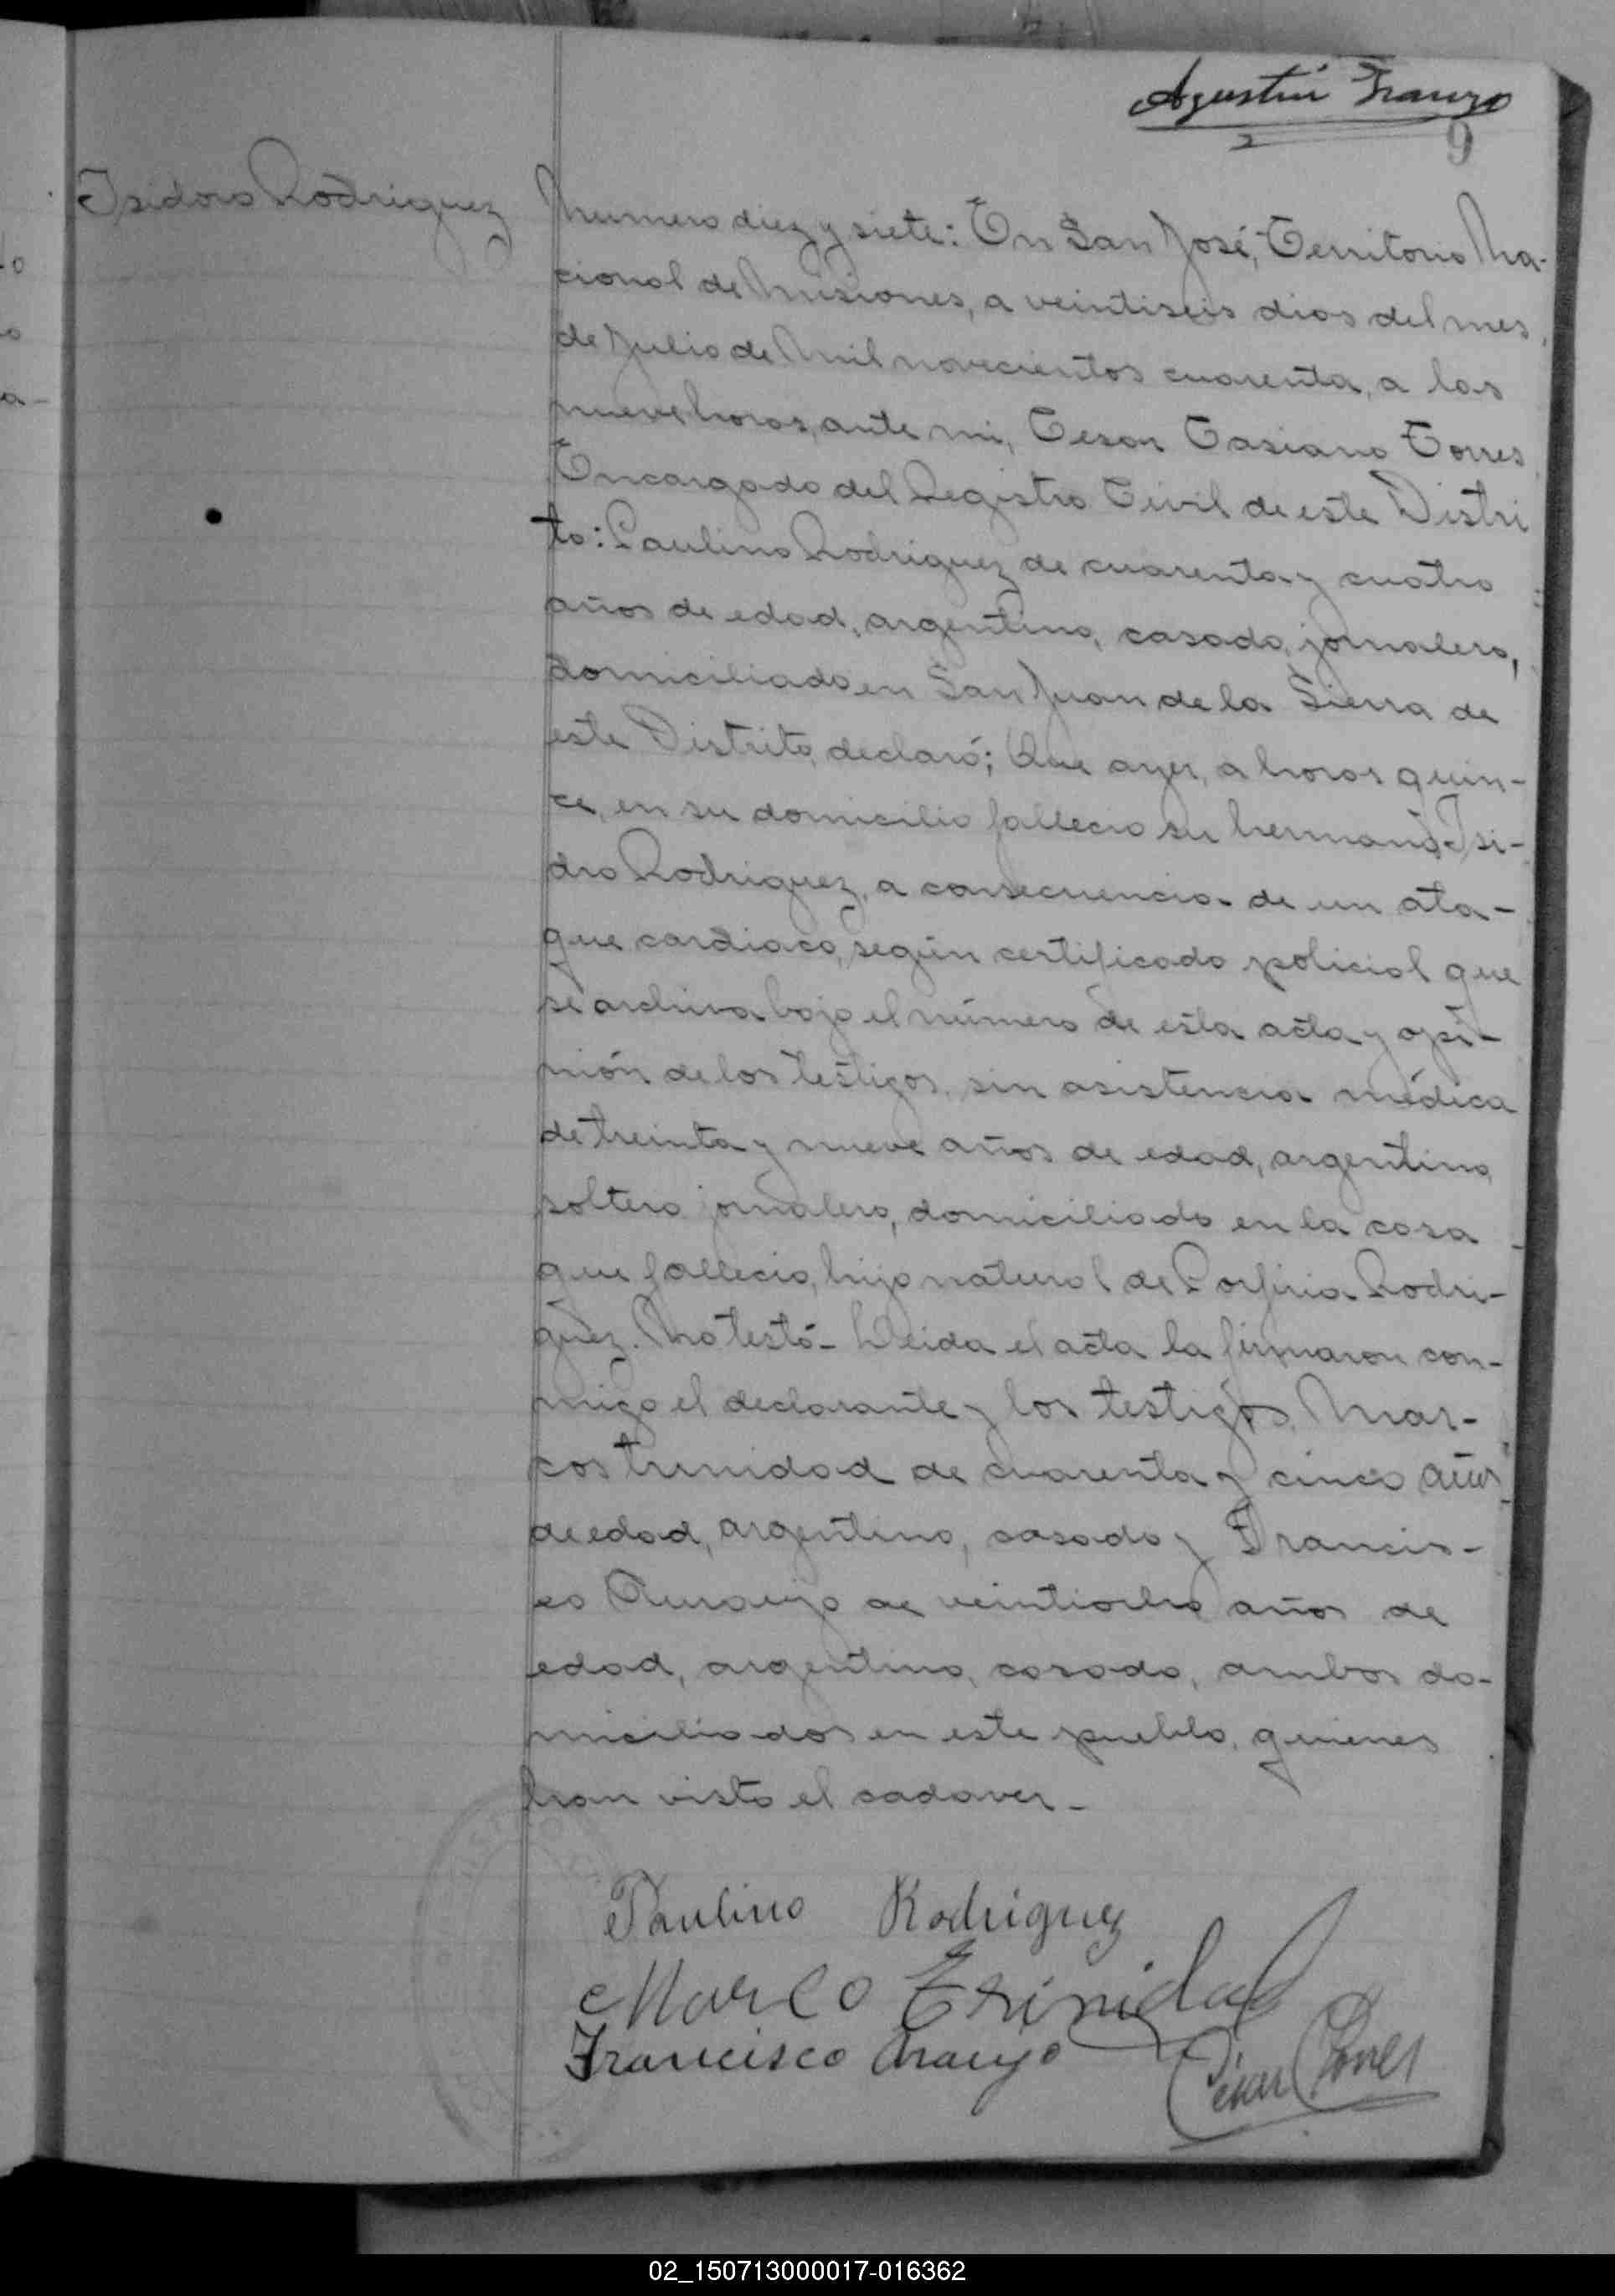 Agustín
9
Isidoro Rodriguez
Numero diez y siete: En San José, Territorio Na-
cional de Misiones, a veintiseis dias del mes
de Julio de Mil novecientos cuarenta, a las
nueve horas, ante mi, Cesar Casiano Torres
Encargado del Registro Civil de este Distri
to: Paulino Rodriguez de cuarenta y cuatro
años de edad, argentino, casado, jornalero,
domiciliado en San Juan de la Sierra de
este Distrito, declaró; Que ayer, a horas quin-
ce, en su domicilio fallecio su hermano Isi-
dro Rodriguez, a consecuencia de un ata-
que cardiaco, según certificado policial que
se archiva bajo el número de esta acta y opi-
nión de los testigos, sin asistencia médica
de treinta y nueve años de edad, argentino,
soltero jornalero, domiciliado en la casa
que fallecio, hijo natural de Porfiria Rodri-
guez. No testó- Leida el acta la firmaron con-
migo el declarante y los testigos, Mar-
cos trinidad de cuarenta y cinco años
de edad, argentino, casado y Francis-
co Araujo de veintiocho años de
edad, argentino, casado, ambos do-
miciliados en este pueblo, quienes
han visto el cadaver-
Paulino Rodriguez
Marco Trinidad
Francisco Araujo
Cesar Torres
02_150713000017-016362